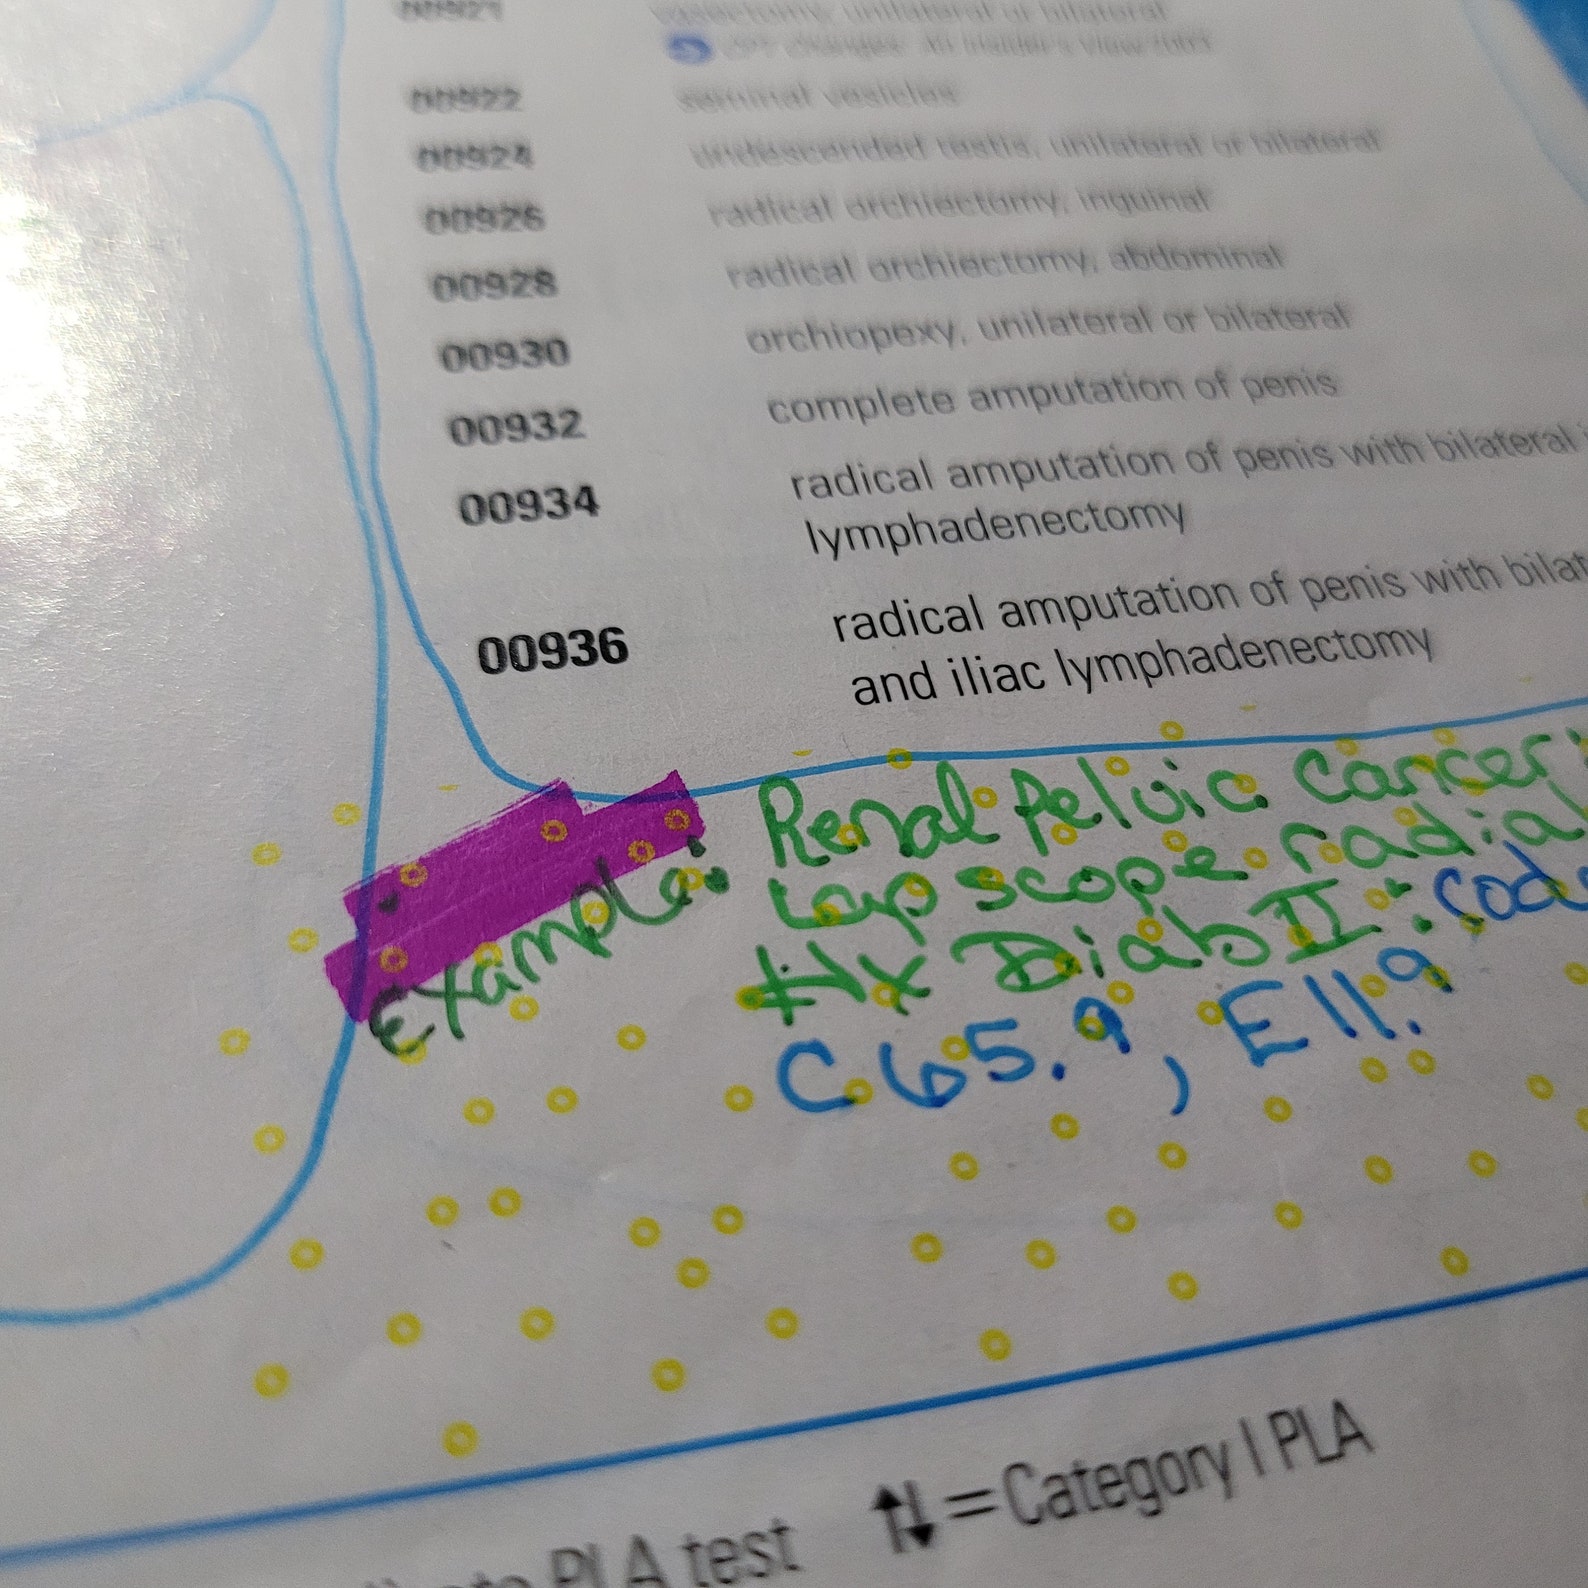 00921 vasectomy, unilateral or bilateral
CPT Changes: An Insider's View
00922 seminal vesicles
00924 undescended testis, unilateral or bilateral
00926 radical orchiectomy, inguinal
00928 radical orchiectomy, abdominal
00930 orchiopexy, unilateral or bilateral
00932 complete amputation of penis
00934 radical amputation of penis with bilateral
lymphadenectomy
00936 radical amputation of penis with
and iliac lymphadenectomy
Example: Renal Pelvic Cancer:
Lap scope radial
Hx Diab II: Code
C65.9, E11.9
PLA test ↑↓=Category I PLA